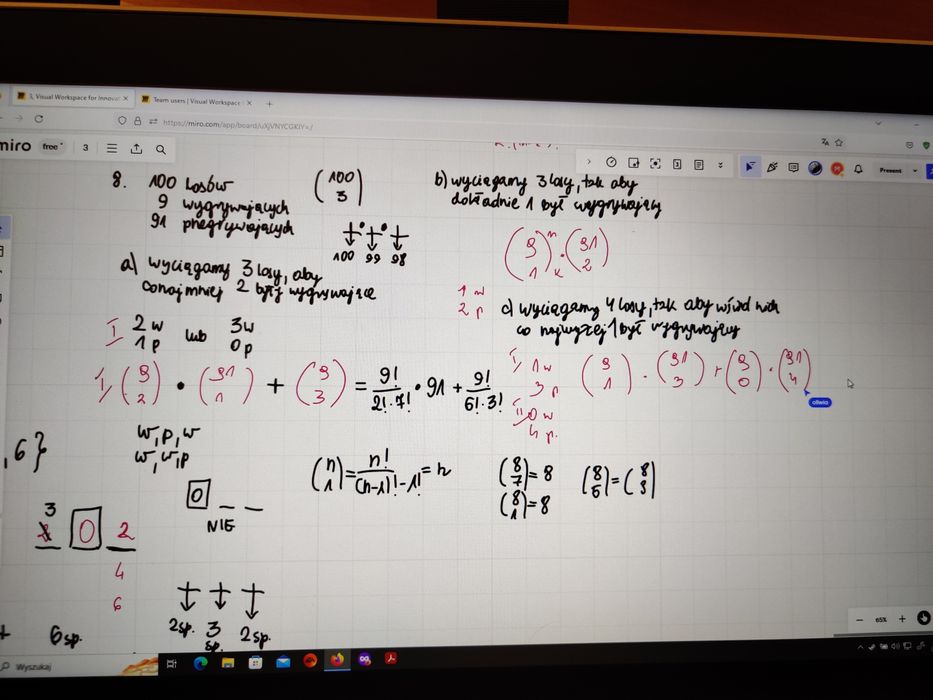 3, Visual Workspace for Innovat ×
Team users | Visual Workspace ×
+
https://miro.com/app/board/uXjVNYCGKIY=/
miro
free
3
Present
8. 100 losów
9 wygrywających
91 przegrywających
(100 3)
100 99 98
a) wyciągamy 3 losy, aby
conajmniej 2 były wygrywające
I 2w lub 3w
1p 0p
I/ (9 2) • (91 1) + (9 3) = 9!/2!·7! · 91 + 9!/6!·3!
w,p,w
w,w,p
0 _ _
NIE
, 6}
3
0 2
4
6
6sp.
2sp. 3 sp. 2sp.
b) wyciągamy 3 losy, tak aby
dokładnie 1 był wygrywający
(9 1) n k · (91 2)
1 w
2 p
c) wyciągamy 4 losy, tak aby wśród nich
co najwyżej 1 był wygrywający
I/ 1w
3p
(9 1) · (91 3) + (9 0) · (91 4)
II 0w
4p.
oliwia
(n 1) = n!/(n-1)!-1! = n
(8 7) = 8
(8 1) = 8
(8 5) = (8 3)
65%
Wyszukaj